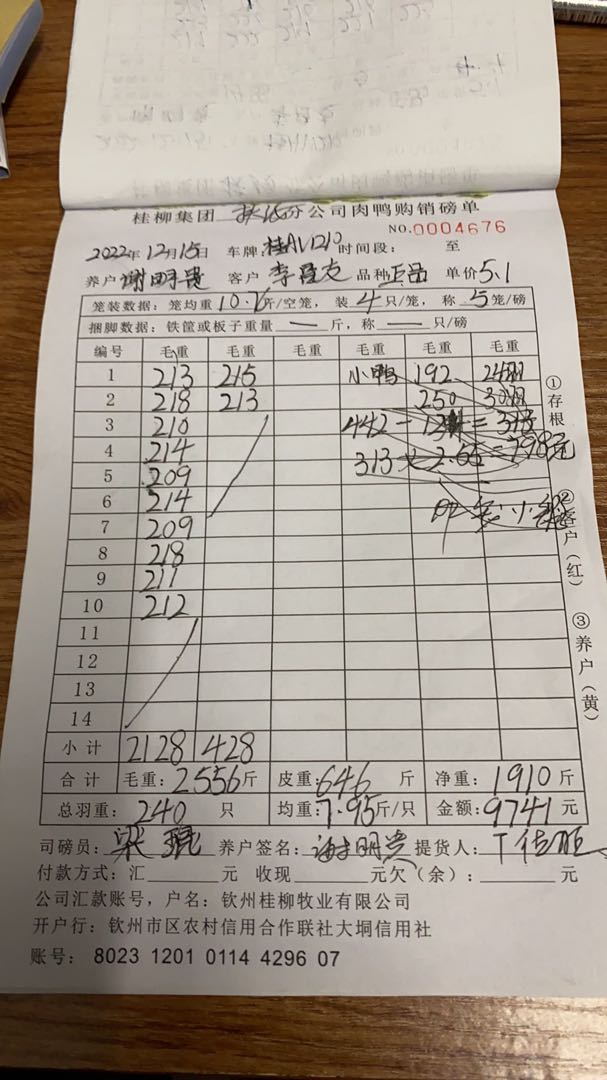 桂柳集团 分公司肉鸭购销磅单
NO.0004676
2022年12月15日 车牌:桂AV1210 时间段: 至
养户 谢明贵 客户 李 品种 单价5.1
笼装数据:笼均重 10.76斤/空笼,装 4 只/笼,称 5 笼/磅
捆脚数据:铁筐或板子重量 — 斤,称 — 只/磅
编号 毛重 毛重 毛重 毛重 毛重 毛重
1 213 215 小鸭 192 24羽
2 218 213 250 30羽
3 210 442 - = 313
4 214 313 × 2.55 = 798元
5 209
6 214
7 209
8 218
9 211
10 212
11
12
13
14
小计 2128 428
合计 毛重:2556斤 皮重:646斤 净重:1910斤
总羽重:240只 均重:7.95斤/只 金额:9741元
司磅员:梁 养户签名:谢明贵 提货人:
付款方式:汇 元 收现 元欠(余): 元
公司汇款账号,户名:钦州桂柳牧业有限公司
开户行:钦州市区农村信用合作联社大垌信用社
账号: 8023 1201 0114 4296 07
①存根 ②客户(红) ③养户(黄)